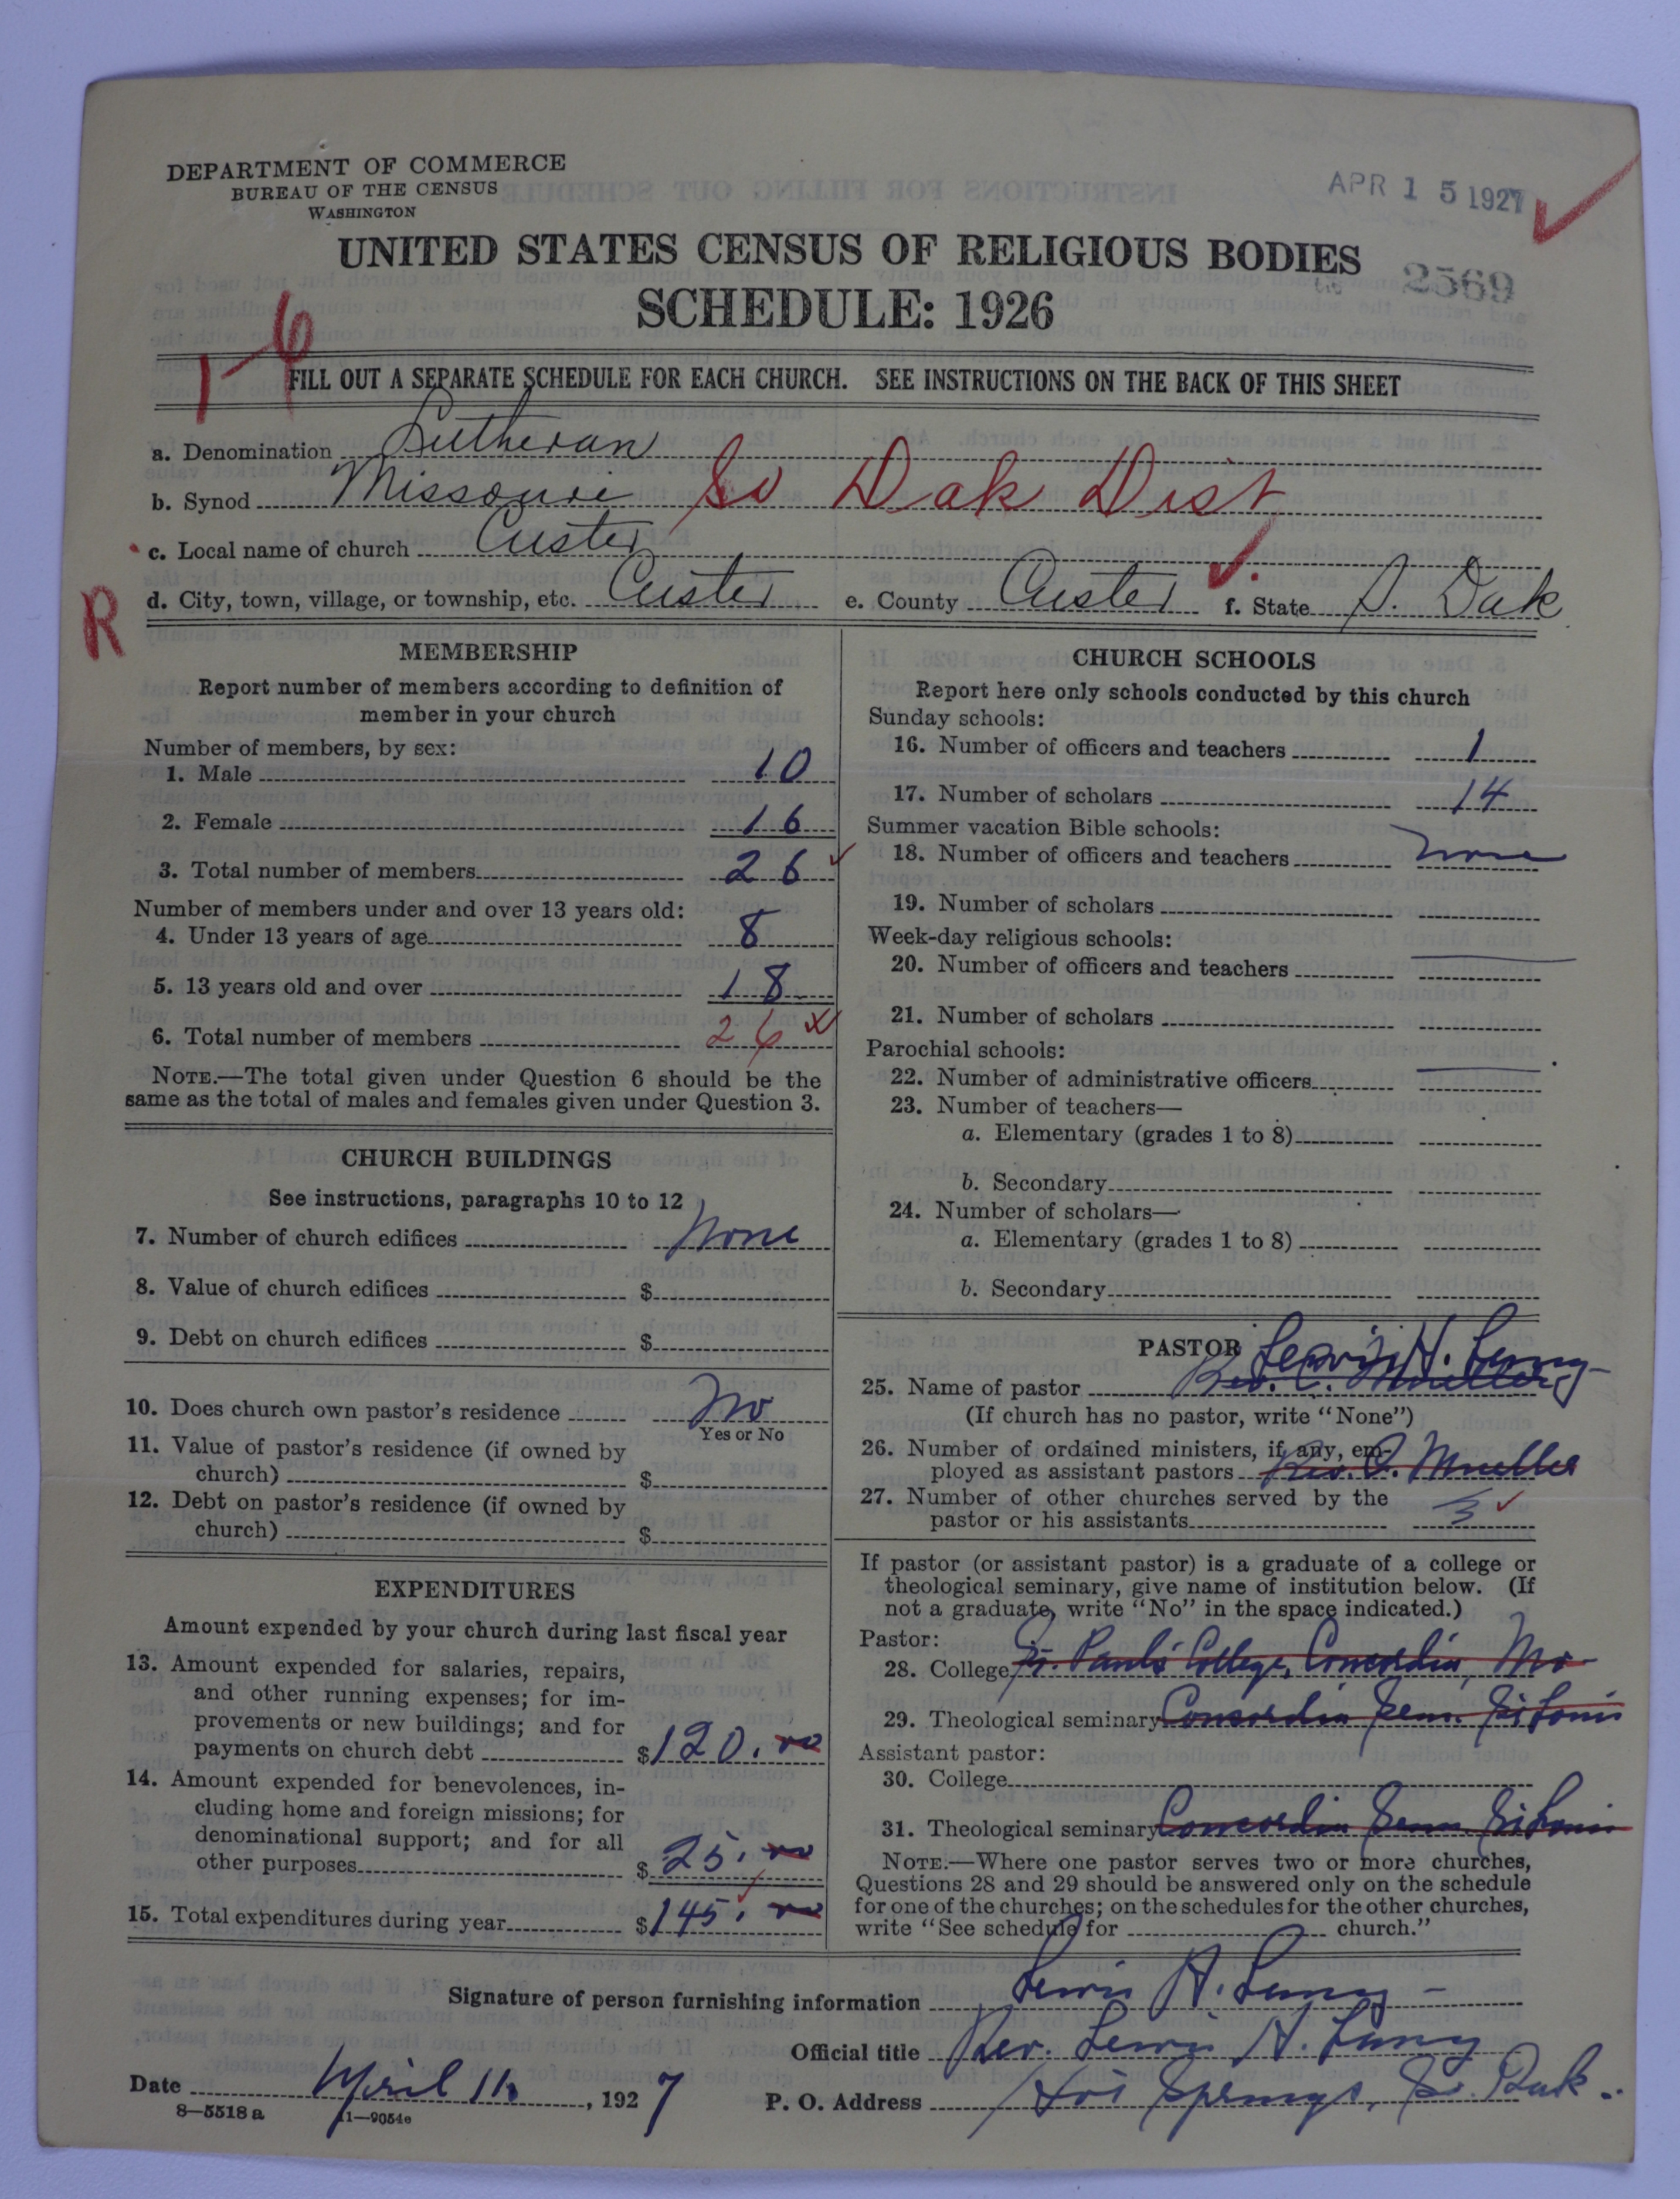 DEPARTMENT OF COMMERCE
BUREAU OF THE CENSUS
WASHINGTON
APR 15 1927
UNITED STATES CENSUS OF RELIGIOUS BODIES
2569
SCHEDULE: 1926
1-6
FILL OUT A SEPARATE SCHEDULE FOR EACH CHURCH. SEE INSTRUCTIONS ON THE BACK OF THIS SHEET
a. Denomination Lutheran
b. Synod Missouri So Dak Dist
c. Local name of church Custer
R
d. City, town, village, or township, etc. Custer e. County Custer f. State S. Dak.
MEMBERSHIP
Report number of members according to definition of
member in your church
Number of members, by sex:
1. Male 10
2. Female 16
3. Total number of members 26
Number of members under and over 13 years old:
4. Under 13 years of age 8
5. 13 years old and over 18
6. Total number of members 26
NOTE.—The total given under Question 6 should be the
same as the total of males and females given under Question 3.
CHURCH BUILDINGS
See instructions, paragraphs 10 to 12
7. Number of church edifices None
8. Value of church edifices $
9. Debt on church edifices $
10. Does church own pastor's residence No
Yes or No
11. Value of pastor's residence (if owned by
church) $
12. Debt on pastor's residence (if owned by
church) $
EXPENDITURES
Amount expended by your church during last fiscal year
13. Amount expended for salaries, repairs,
and other running expenses; for im-
provements or new buildings; and for
payments on church debt $120.00
14. Amount expended for benevolences, in-
cluding home and foreign missions; for
denominational support; and for all
other purposes $25.00
15. Total expenditures during year $145.00
CHURCH SCHOOLS
Report here only schools conducted by this church
Sunday schools:
16. Number of officers and teachers 1
17. Number of scholars 14
Summer vacation Bible schools:
18. Number of officers and teachers none
19. Number of scholars
Week-day religious schools:
20. Number of officers and teachers
21. Number of scholars
Parochial schools:
22. Number of administrative officers
23. Number of teachers—
a. Elementary (grades 1 to 8)
b. Secondary
24. Number of scholars—
a. Elementary (grades 1 to 8)
b. Secondary
PASTOR Lewis H.
25. Name of pastor Rev. C. Mueller
(If church has no pastor, write "None")
26. Number of ordained ministers, if any, em-
ployed as assistant pastors Rev. Mueller
27. Number of other churches served by the
pastor or his assistants 3
If pastor (or assistant pastor) is a graduate of a college or
theological seminary, give name of institution below. (If
not a graduate, write "No" in the space indicated.)
Pastor:
28. College St. Paul's College, Concordia, Mo
29. Theological seminary Concordia Sem. St Louis
Assistant pastor:
30. College
31. Theological seminary Concordia Sem. St Louis
NOTE.—Where one pastor serves two or more churches,
Questions 28 and 29 should be answered only on the schedule
for one of the churches; on the schedules for the other churches,
write "See schedule for church."
Signature of person furnishing information Lewis H.
Official title Rev. Lewis H.
Date April 11, 1927 P. O. Address Hot Springs, So. Dak.
8—5518 a 11—9054e